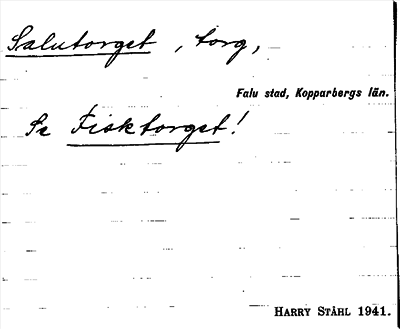 Salutorget, torg,
Falu stad, Kopparbergs län.
Se Fisktorget!
HARRY STÅHL 1941.